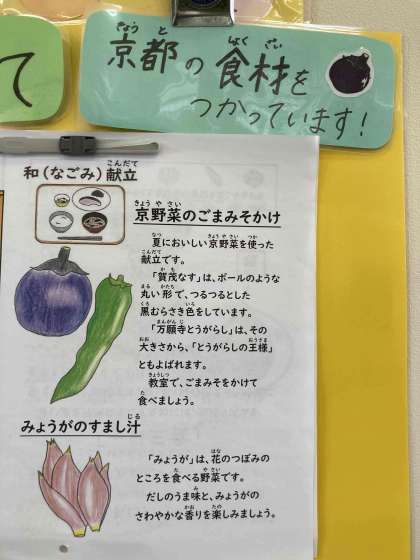 て
京都の食材を
つかっています!
和(なごみ)献立
京野菜のごまみそかけ
夏においしい京野菜を使った
献立です。
「賀茂なす」は、ボールのような
丸い形で、つるつるとした
黒むらさき色をしています。
「万願寺とうがらし」は、その
大きさから、「とうがらしの王様」
ともよばれます。
教室で、ごまみそをかけて
食べましょう。
みょうがのすまし汁
「みょうが」は、花のつぼみの
ところを食べる野菜です。
だしのうま味と、みょうがの
さわやかな香りを楽しみましょう。